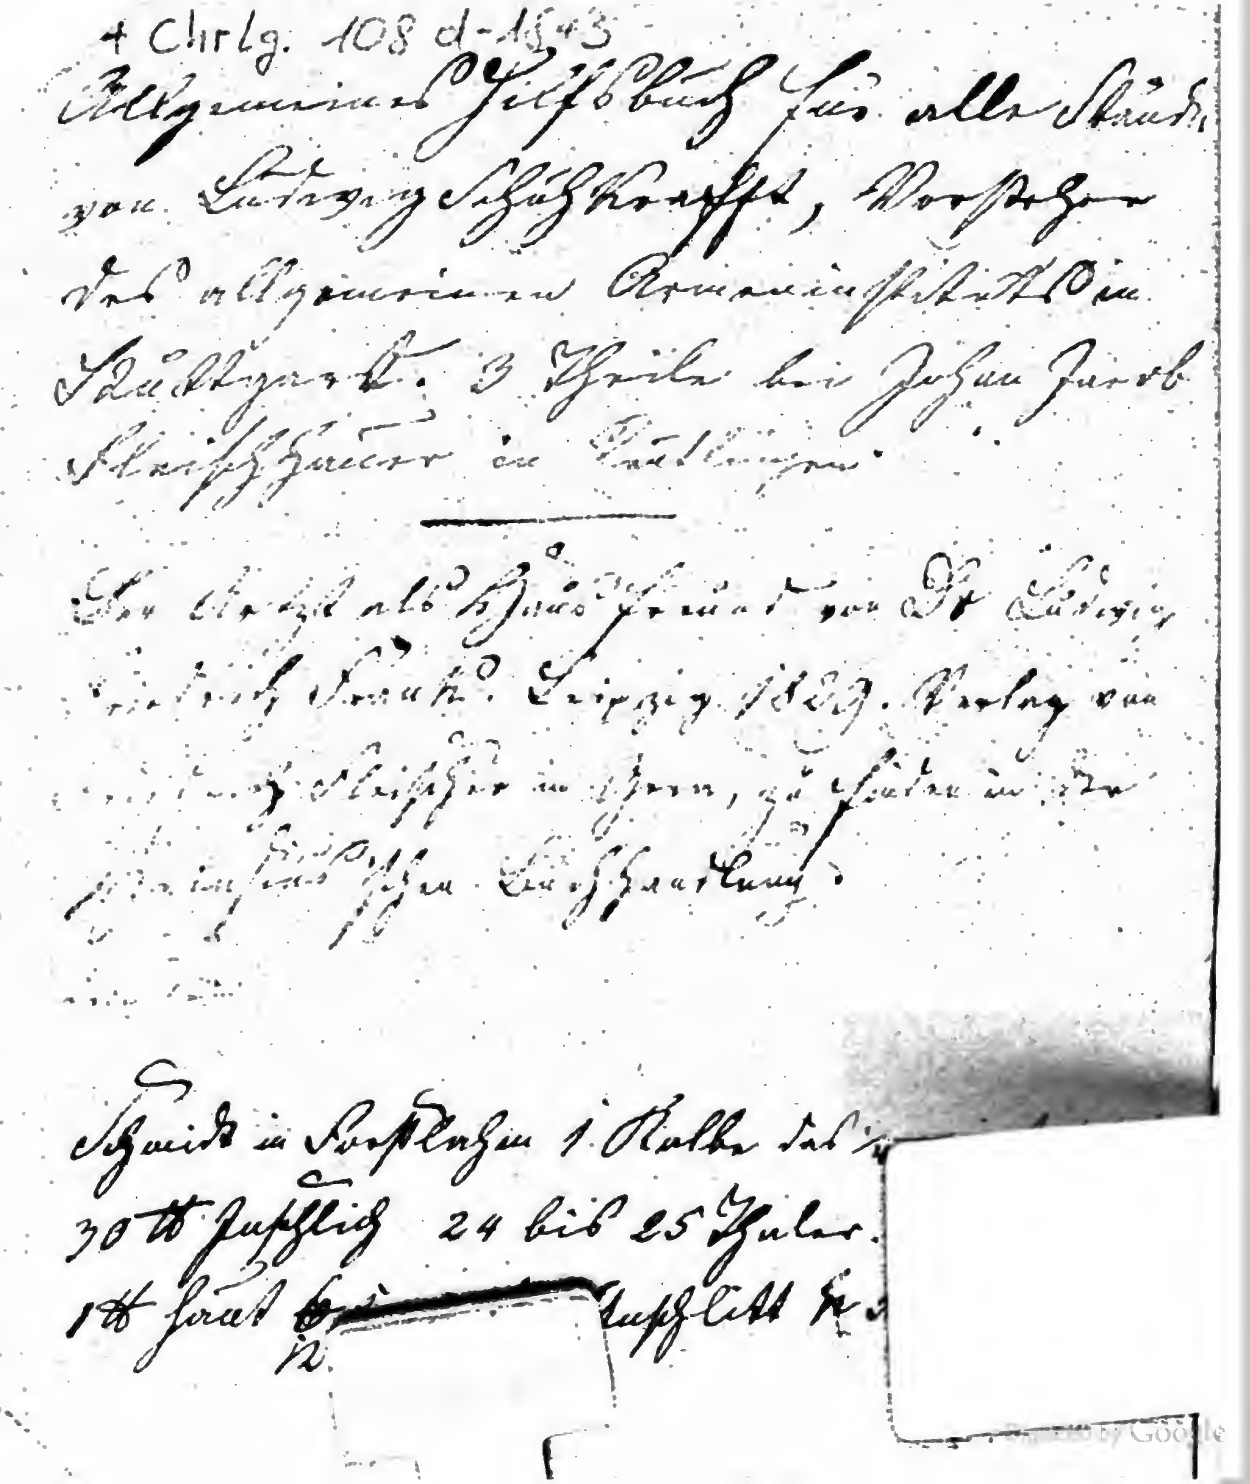 4 Chrlg. 108 d-1843
Allgemeines Hilfsbuch für alle Stände
von Ludwig Schuhkrafft, Vorsteher
des allgemeinen Armeninstituts in
Stuttgart. 3 Theile bei Johan Jacob
Fleischhauer in Reutlingen.
Der Arzt als Hausfreund von Dr Ludwig
Frank. Leipzig 1829. Verlag von
Fleischer in Bern, zu finden in der
schen Buchhandlung.
Schmidt in Forstlahm 1 Kalbe das
30 ℔ Inschlich 24 bis 25 Thaler.
1 ℔ Haut 6 Inschlitt
12
Digitized by Google